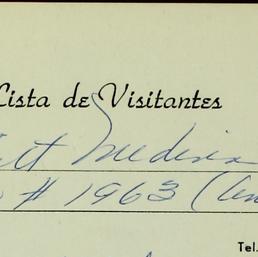 Lista de Visitantes
Medina
# 1963 (
Tel.